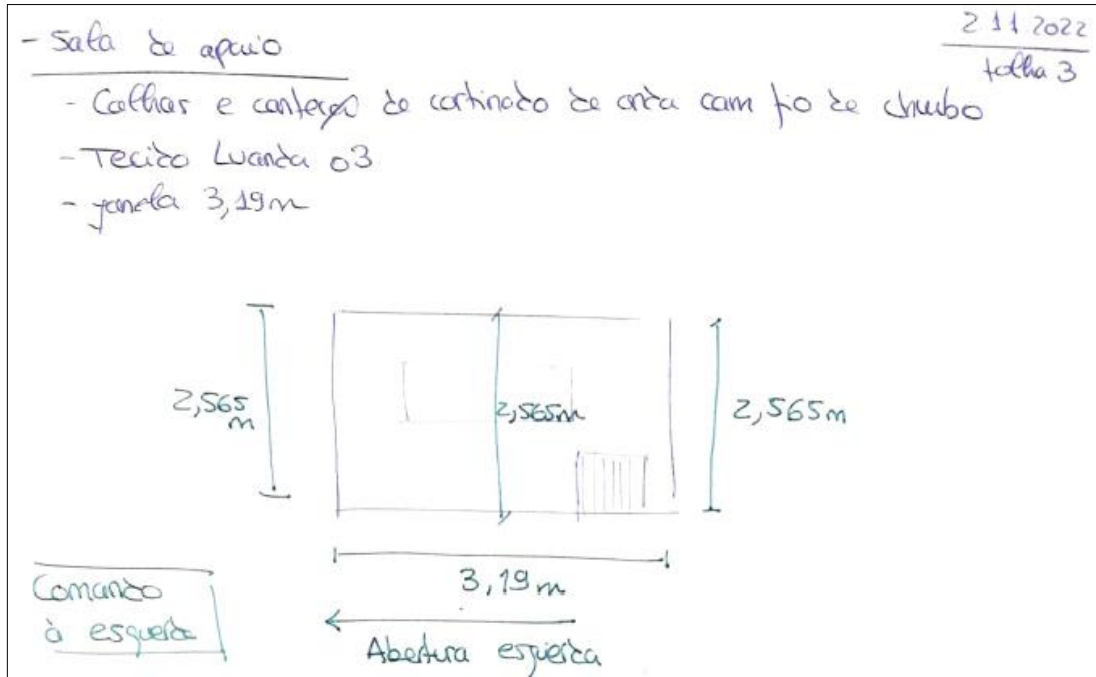 2 11 2022
folha 3
- Sala de apoio
- Calhas e confeção de cortinado de onda com fio de chumbo
- Tecido Luanda 03
- janela 3,19m
2,565
m
2,565m
2,565m
3,19m
Comando
à esquerda
Abertura esquerda